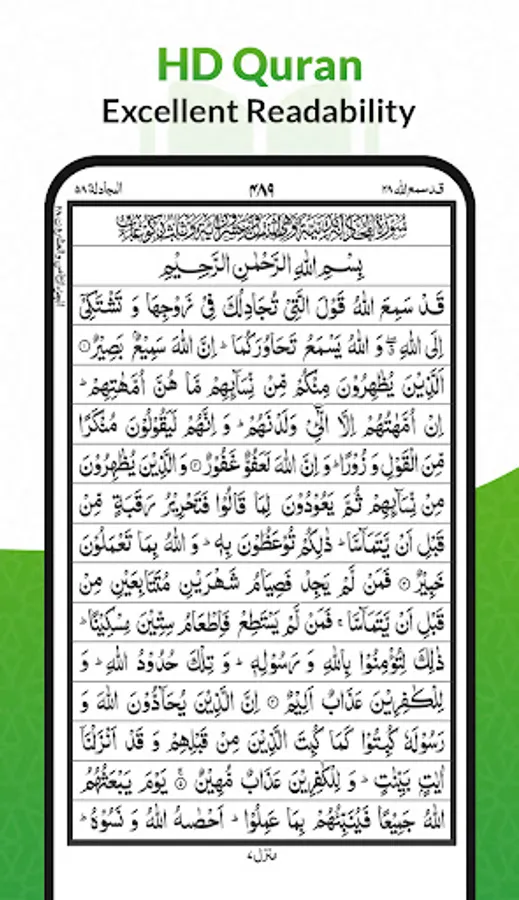 HD Quran
Excellent Readability
المجادلة ٥٨
٤٨٩
قد سمع الله ٢٨
بِسْمِ اللهِ الرَّحْمٰنِ الرَّحِيْمِ
قَدْ سَمِعَ اللهُ قَوْلَ الَّتِيْ تُجَادِلُكَ فِيْ زَوْجِهَا وَ تَشْتَكِيْٓ
اِلَى اللهِ ۖ وَ اللهُ يَسْمَعُ تَحَاوُرَكُمَا ؕ اِنَّ اللهَ سَمِيْعٌۢ بَصِيْرٌ ۝
اَلَّذِيْنَ يُظٰهِرُوْنَ مِنْكُمْ مِّنْ نِّسَآىِٕهِمْ مَّا هُنَّ اُمَّهٰتِهِمْ ؕ
اِنْ اُمَّهٰتُهُمْ اِلَّا الّٰٓـِٔيْ وَلَدْنَهُمْ ؕ وَ اِنَّهُمْ لَيَقُوْلُوْنَ مُنْكَرًا
مِّنَ الْقَوْلِ وَ زُوْرًا ؕ وَ اِنَّ اللهَ لَعَفُوٌّ غَفُوْرٌ ۝ وَ الَّذِيْنَ يُظٰهِرُوْنَ
مِنْ نِّسَآىِٕهِمْ ثُمَّ يَعُوْدُوْنَ لِمَا قَالُوْا فَتَحْرِيْرُ رَقَبَةٍ مِّنْ
قَبْلِ اَنْ يَّتَمَآسَّا ؕ ذٰلِكُمْ تُوْعَظُوْنَ بِهٖ ؕ وَ اللهُ بِمَا تَعْمَلُوْنَ
خَبِيْرٌ ۝ فَمَنْ لَّمْ يَجِدْ فَصِيَامُ شَهْرَيْنِ مُتَتَابِعَيْنِ مِنْ
قَبْلِ اَنْ يَّتَمَآسَّا ۚ فَمَنْ لَّمْ يَسْتَطِعْ فَاِطْعَامُ سِتِّيْنَ مِسْكِيْنًا ؕ
ذٰلِكَ لِتُؤْمِنُوْا بِاللهِ وَ رَسُوْلِهٖ ؕ وَ تِلْكَ حُدُوْدُ اللهِ ؕ وَ
لِلْكٰفِرِيْنَ عَذَابٌ اَلِيْمٌ ۝ اِنَّ الَّذِيْنَ يُحَآدُّوْنَ اللهَ وَ
رَسُوْلَهٗ كُبِتُوْا كَمَا كُبِتَ الَّذِيْنَ مِنْ قَبْلِهِمْ وَ قَدْ اَنْزَلْنَاۤ
اٰيٰتٍۭ بَيِّنٰتٍ ؕ وَ لِلْكٰفِرِيْنَ عَذَابٌ مُّهِيْنٌ ۝ يَوْمَ يَبْعَثُهُمُ
اللهُ جَمِيْعًا فَيُنَبِّئُهُمْ بِمَا عَمِلُوْا ؕ اَحْصٰىهُ اللهُ وَ نَسُوْهُ ؕ
منزل ٧